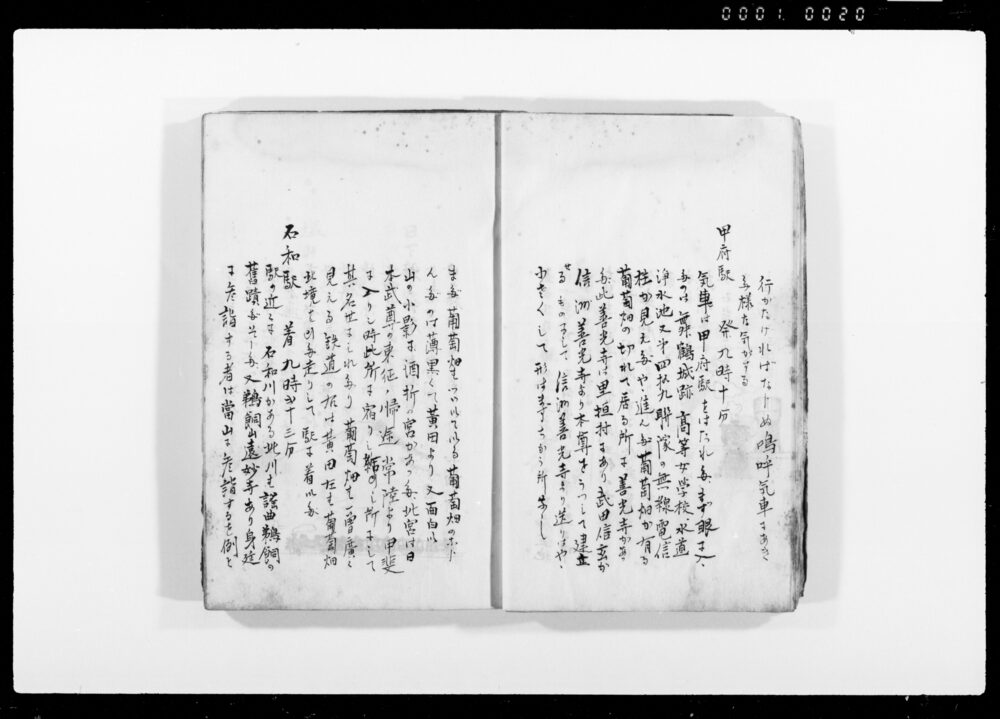 0001 0020
行かたければならぬ嗚呼気車にあき
る様な気がする
甲府駅 発九時十分
気車は甲府駅をはなれた まず眼に入
るのは舞鶴城跡 高等女学校 水道
浄水池又は四拾九聯隊の無線電信
柱が見えた や、進んだ葡萄畑が有る
葡萄畑の切れて居る所に善光寺があ
る 此善光寺は里垣村にあり武田信玄が
信洲善光寺より本尊をうつして建立
せるものにして 信洲善光寺より造りはや、
小さくして形は
まだ葡萄畑もつづいている 葡萄畑の
んだのは薄黒くて黄田より又面白い
山の小影に酒折の宮があった 此宮は日
本武尊の東征ノ帰途常陸より甲斐
に入りし時此所に宿りし 所にして
其名世にしれたり 葡萄畑も一層広く
見える 鉄道の右は黄田左も葡萄畑
此境を 走りして駅に着いた
石和駅 着九時二十三分
駅の近くに石和川がある 此川も謡曲鵜飼の
旧蹟 又鵜飼山遠妙寺あり身延
に参詣する者は当山に参詣するを例と